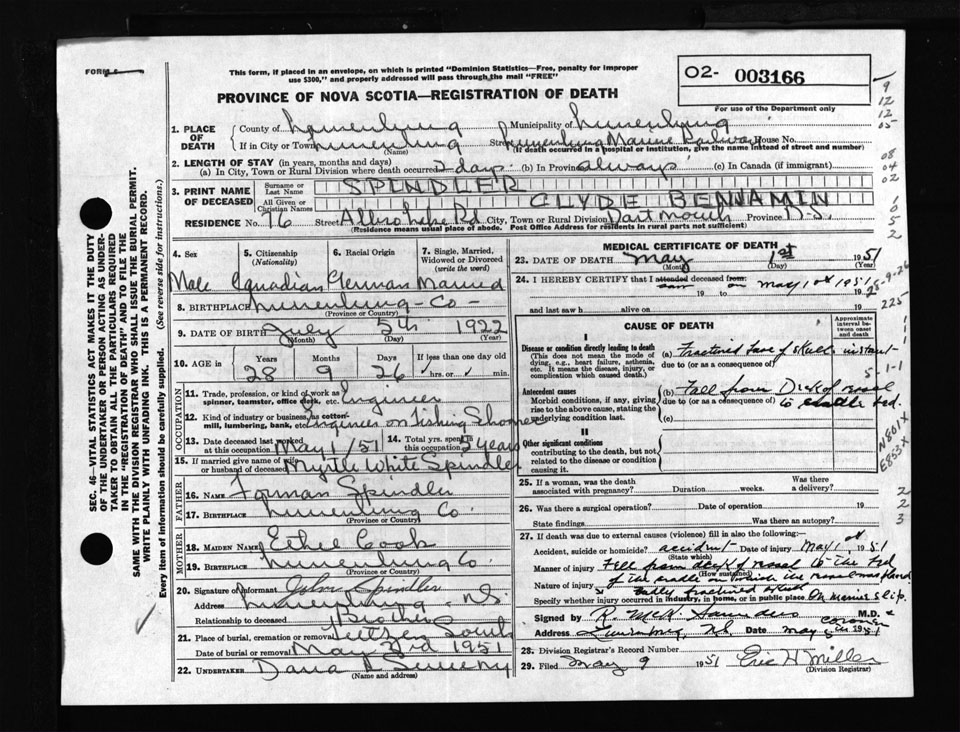 FORM 6
This form, if placed in an envelope, on which is printed "Dominion Statistics—Free, penalty for improper
use $300," and properly addressed will pass through the mail "FREE"
02- 003166
For use of the Department only
PROVINCE OF NOVA SCOTIA—REGISTRATION OF DEATH
1. PLACE OF DEATH
County of Lunenburg Municipality of Lunenburg
If in City or Town Lunenburg Street Lunenburg Marine Railway House No.
(Name) (If death occurred in a hospital or institution, give the name instead of street and number)
2. LENGTH OF STAY (in years, months and days)
(a) In City, Town or Rural Division where death occurred 2 days (b) In Province always (c) In Canada (if immigrant)
3. PRINT NAME OF DECEASED
Surname or Last Name SPINDLER
All Given or Christian Names CLYDE BENJAMIN
RESIDENCE No. 76 Street Rd City, Town or Rural Division Dartmouth Province N.S.
(Residence means usual place of abode. Post Office Address for residents in rural parts not sufficient)
4. Sex
5. Citizenship (Nationality)
6. Racial Origin
7. Single, Married, Widowed or Divorced (write the word)
Male Canadian German Married
8. BIRTHPLACE Lunenburg - Co -
(Province or Country)
9. DATE OF BIRTH July 5th 1922
(Month) (Day) (Year)
10. AGE in Years Months Days If less than one day old
28 9 26 hrs. or min.
OCCUPATION
11. Trade, profession, or kind of work as spinner, teamster, office clerk, etc. Engineer
12. Kind of industry or business, as cotton-mill, lumbering, bank, etc. Engineer on Fishing
13. Date deceased last worked at this occupation May 1/51
14. Total yrs. spent in this occupation 5 years
15. If married give name of wife or husband of deceased Myrtle White Spindler
FATHER
16. NAME Forman Spindler
17. BIRTHPLACE Lunenburg Co
(Province or Country)
MOTHER
18. MAIDEN NAME Ethel Cook
19. BIRTHPLACE Lunenburg Co
(Province or Country)
20. Signature of informant John Spindler
Address Lunenburg N.S.
Relationship to deceased Brother
21. Place of burial, cremation or removal South
Date of burial or removal May 3rd 1951
22. UNDERTAKER Dana Sweeny
(Name and address)
MEDICAL CERTIFICATE OF DEATH
23. DATE OF DEATH May 1st 1951
(Month) (Day) (Year)
24. I HEREBY CERTIFY that I attended deceased from
saw on May 1st 1951
19 to 19
and last saw h alive on 19
CAUSE OF DEATH
Approximate interval between onset and death
I
Disease or condition directly leading to death
(This does not mean the mode of dying, e.g., heart failure, asthenia, etc. It means the disease, injury, or complication which caused death.)
(a) Fractured base of skull instant-
due to (or as a consequence of)
5-1-1
Antecedent causes
Morbid conditions, if any, giving rise to the above cause, stating the underlying condition last.
(b) Fall from Deck of vessel
due to (or as a consequence of) to cradle bed.
(c)
II
Other significant conditions
contributing to the death, but not related to the disease or condition causing it.
25. If a woman, was the death associated with pregnancy? Duration weeks. Was there a delivery?
26. Was there a surgical operation? Date of operation 19
State findings Was there an autopsy?
27. If death was due to external causes (violence) fill in also the following:—
Accident, suicide or homicide? accident Date of injury May 1st 1951
(State which)
Manner of injury Fell from deck of vessel to the bed
(How sustained)
of the cradle on which the vessel was placed
Nature of injury badly fractured skull
Specify whether injury occurred in industry, in home, or in public place On marine slip.
Signed by R. McK. Saunders M.D. & coroner
Address Lunenburg, N.S. Date May 1951
28. Division Registrar's Record Number
29. Filed May 9 1951 Eric H Miller
(Division Registrar)
SEC. 46—VITAL STATISTICS ACT MAKES IT THE DUTY
OF THE UNDERTAKER OR PERSON ACTING AS UNDER-
TAKER TO OBTAIN ALL THE PARTICULARS REQUIRED
IN THE "REGISTRATION OF DEATH" AND TO FILE THE
SAME WITH THE DIVISION REGISTRAR WHO SHALL ISSUE THE BURIAL PERMIT.
WRITE PLAINLY WITH UNFADING INK. THIS IS A PERMANENT RECORD.
Every item of information should be carefully supplied. (See reverse side for instructions.)
9
12
12
05
08
04
02
6
5
2
28-9-26
225
N801X
E853X
2
2
3